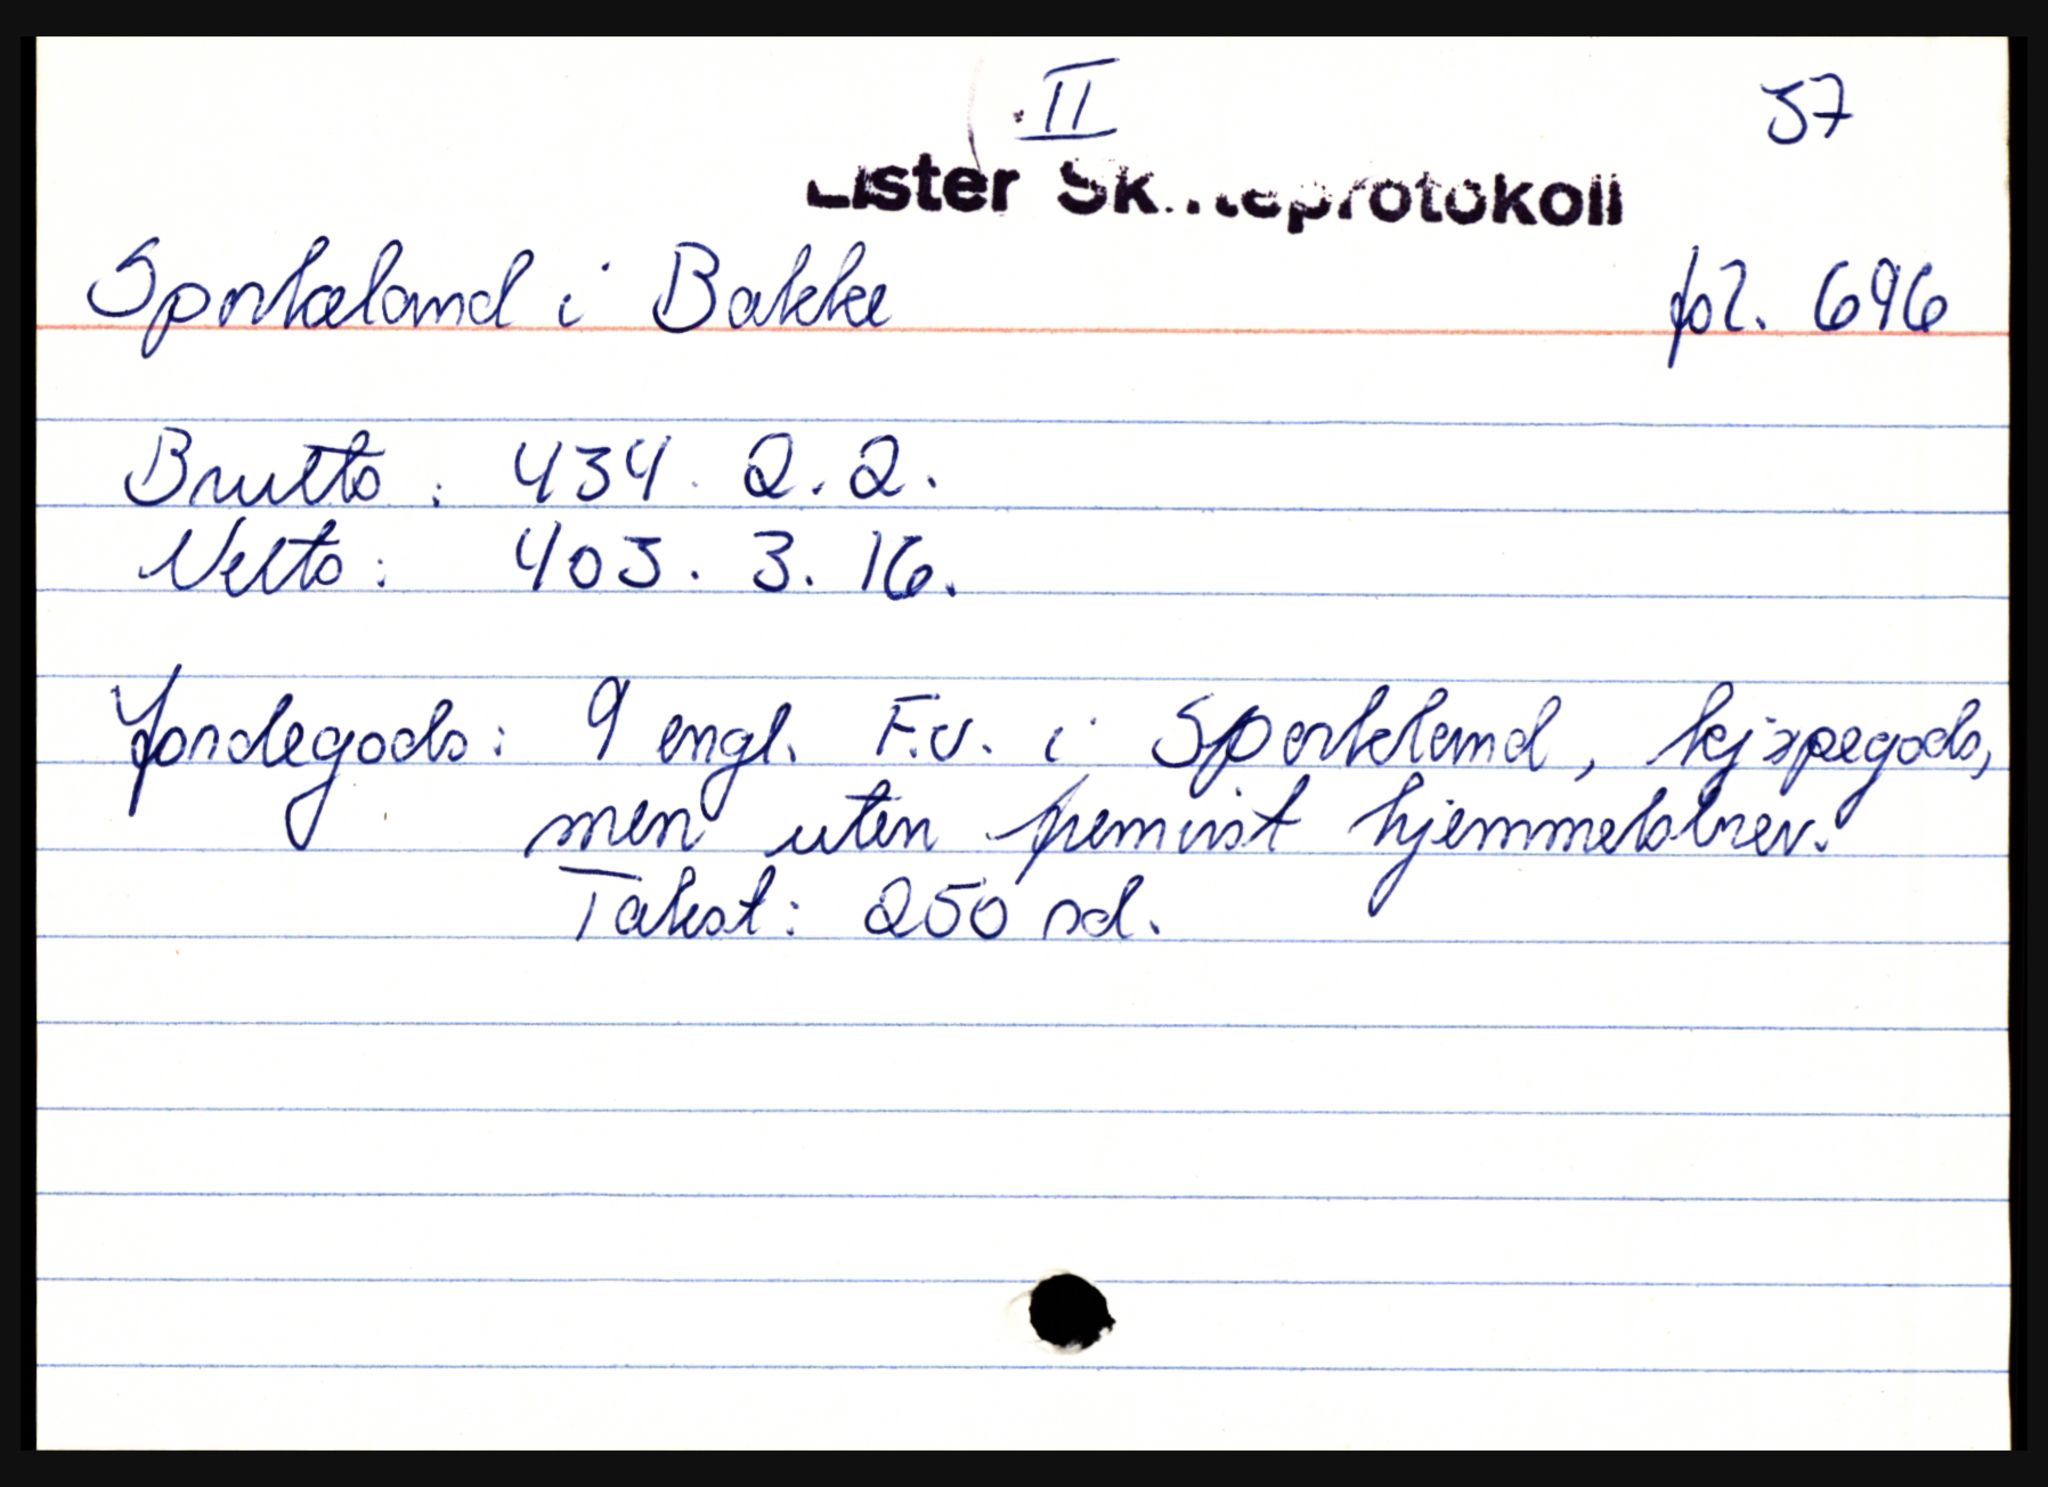 II
57
Lister Skifteprotokoll
Sporkeland i Bakke fol. 696
Brutto: 434. 2. 2.
Netto: 403. 3. 16.
Jordegods: 9 engl. F.v. i Sporkland, kjøpegods,
men uten fremvist hjemmelsbrev.
Takst: 250 rd.